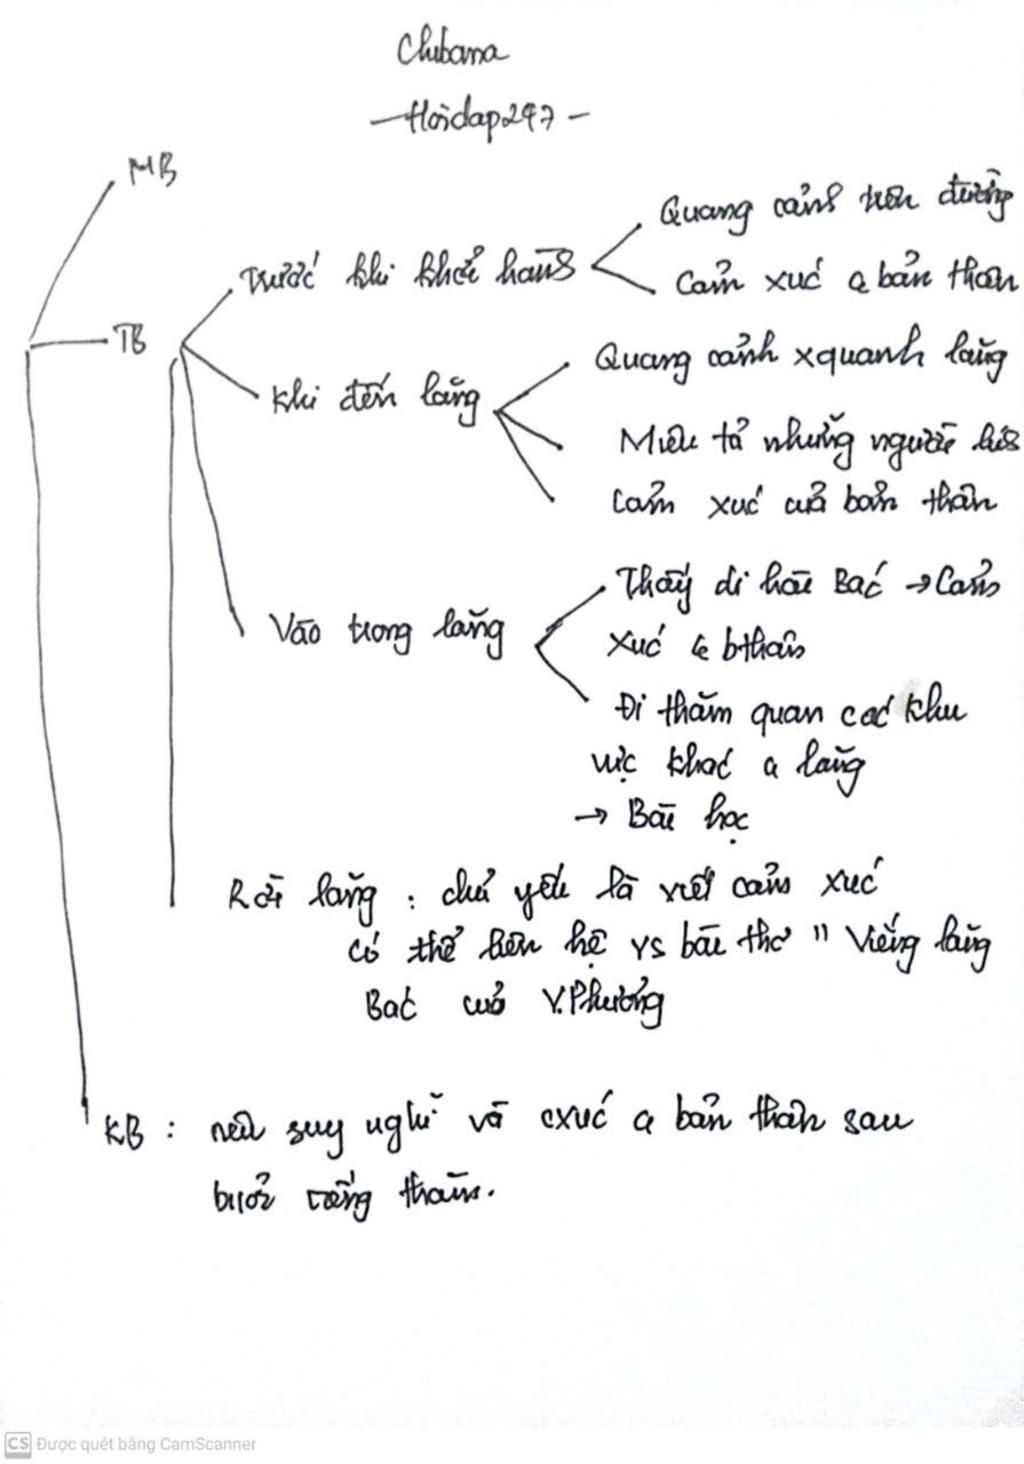 Chubana
-Hoidap247-
MB
TB
Trước khi khởi hành
Quang cảnh trên đường
Cảm xúc c̉ bản thân
Khi đến lăng
Quang cảnh xquanh lăng
Miêu tả những người lính
Cảm xúc của bản thân
Vào trong lăng
Thấy di hài Bác → Cảm
xúc c̉ bthân
Đi thăm quan các khu
vực khác c̉ lăng
→ Bài học
Rời lăng : chủ yếu là viết cảm xúc
có thể liên hệ vs bài thơ " Viếng lăng
Bác của V.Phương
KB : nêu suy nghĩ và cxúc c̉ bản thân sau
buổi viếng thăm.
CS Được quét bằng CamScanner